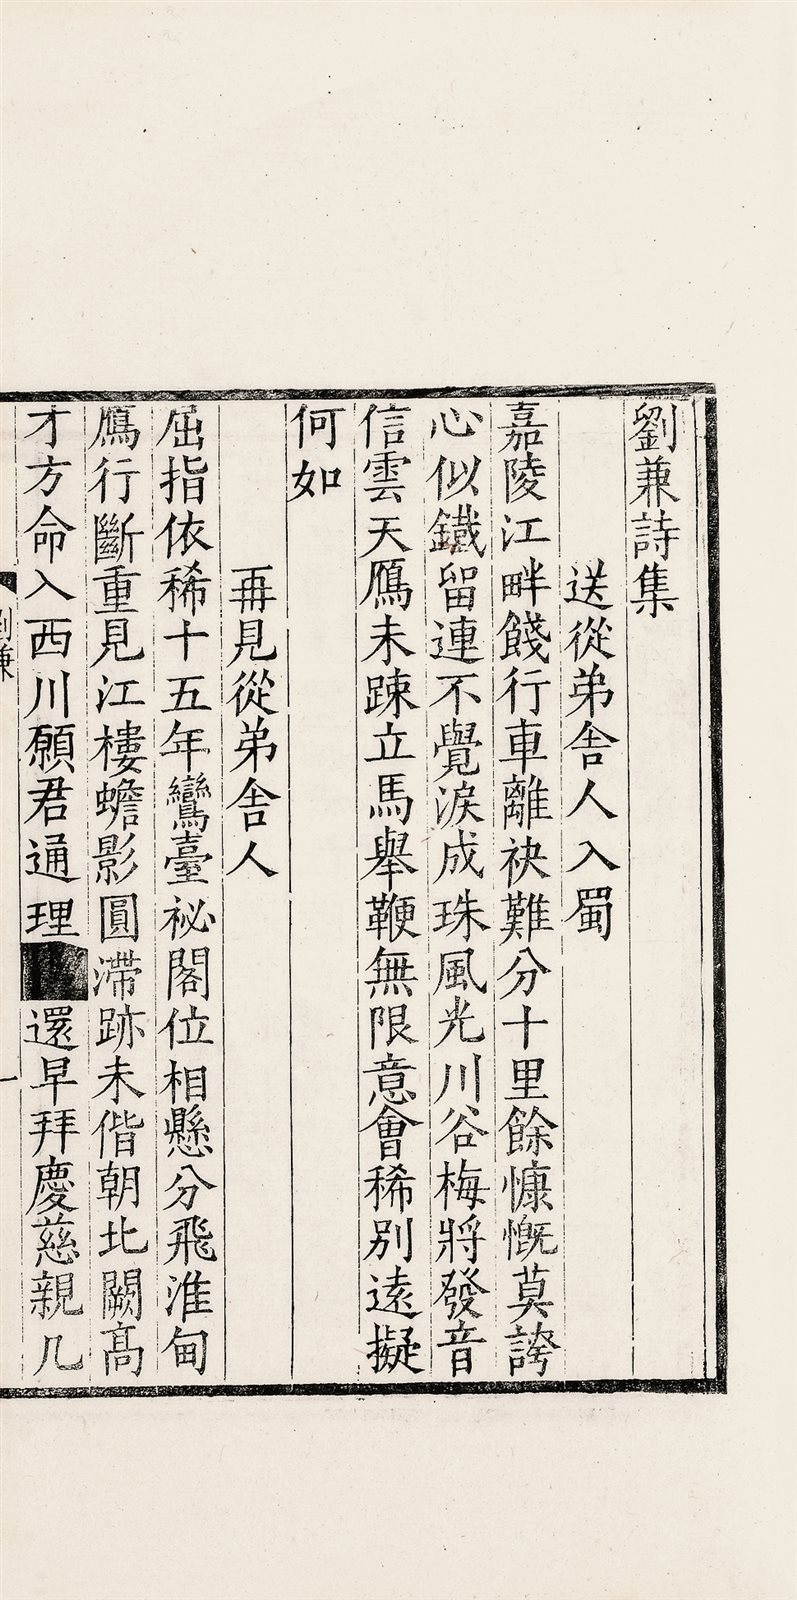 劉兼詩集
送從弟舍人入蜀
嘉陵江畔餞行車離袂難分十里餘慷慨莫誇
心似鐵留連不覺淚成珠風光川谷梅將發音
信雲天鴈未踈立馬舉鞭無限意會稀別遠擬
何如
再見從弟舍人
屈指依稀十五年鸞臺祕閣位相懸分飛淮甸
鴈行斷重見江樓蟾影圓滯跡未偕朝北闕高
才方命入西川願君通理還早拜慶慈親几
劉兼
一